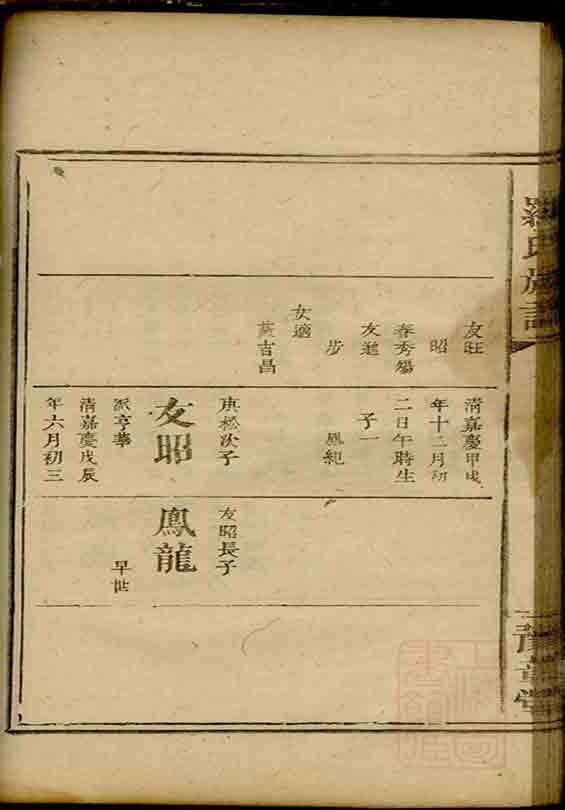 羅氏族譜
友旺
昭
春秀殤
友進
步
女適
黃吉昌
清嘉慶甲戌
年十二月初
二日午時生
子一
鳳紀
庚松次子
友昭
派亨華
清嘉慶戊辰
年六月初三
友昭長子
鳳龍
早世
豫章堂